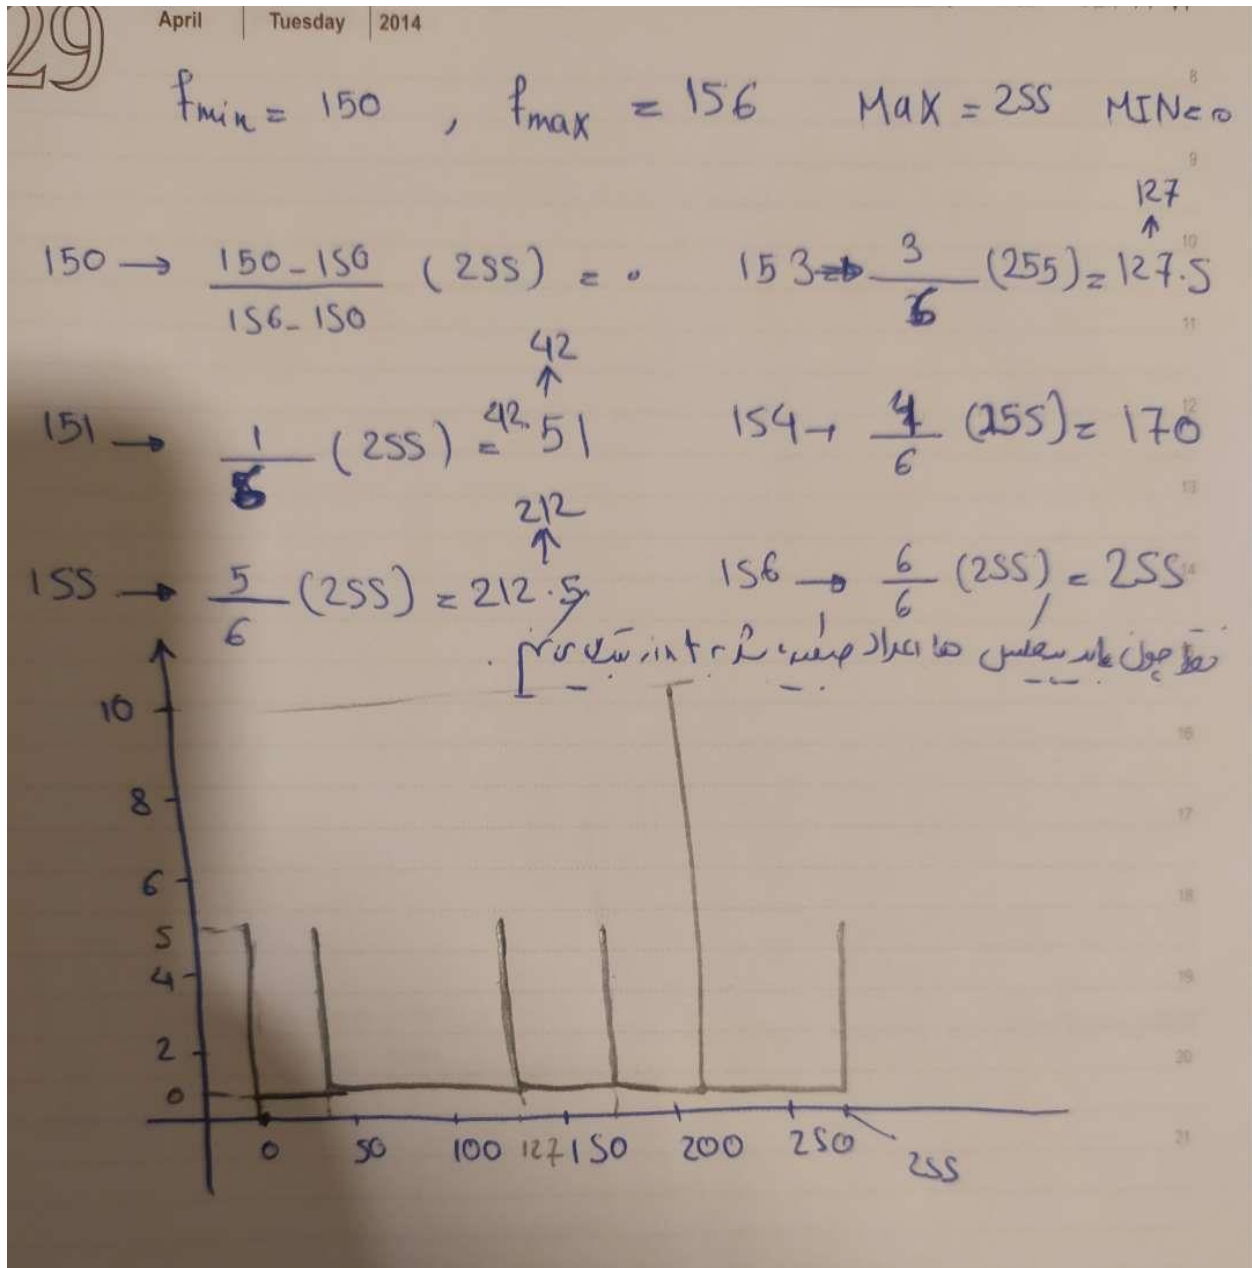 29 April Tuesday 2014
fmin = 150 , fmax = 156 Max = 255 MIN = 0
150 → 150 - 150 / 156 - 150 (255) = 0
153 → 3 / 6 (255) = 127.5 ↑ 127
151 → 1 / 6 (255) = 42.51 ↑ 42
154 → 4 / 6 (255) = 170
155 → 5 / 6 (255) = 212.5 ↑ 212
156 → 6 / 6 (255) = 255
فقط چون باید پیکسل ها اعداد صحیح باشد int
10
8
6
5
4
2
0
0 50 100 127 150 200 250 255
8
9
10
11
12
13
14
16
17
18
19
20
21